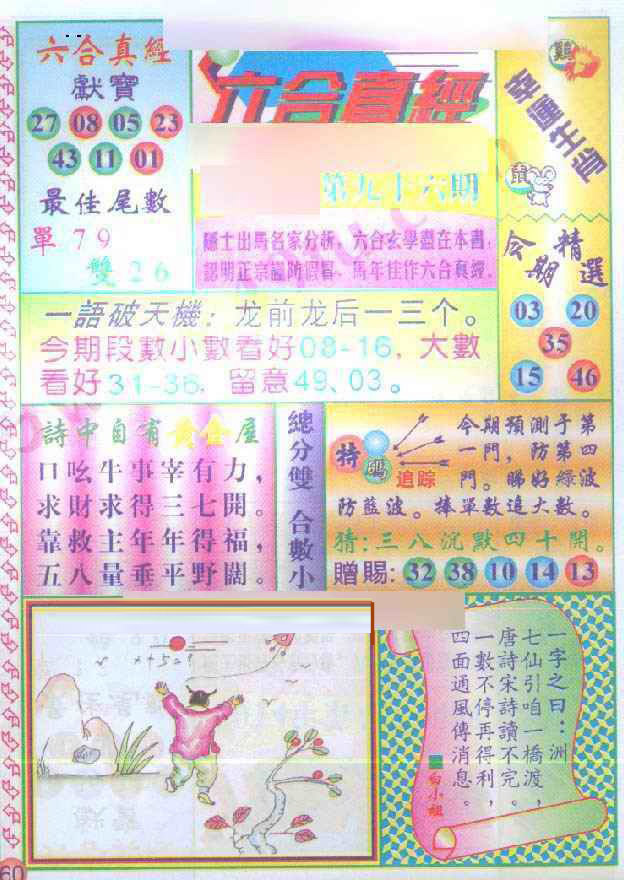 六合真經
獻寶
27 08 05 23
43 11 01
最佳尾數
單 79
雙 26
六合真經
第九十六期
隱士出馬名家分析，六合玄學盡在本書，
認明正宗謹防假冒、馬年佳作六合真經。
幸運生肖
雞
鼠
今期精選
03 20
35
15 46
一語破天機：龙前龙后一三个。
今期段數小數看好08-16，大數
看好31-36，留意49、03。
詩中自有黃金屋
口吆牛事宰有力，
求財求得三七開。
靠救主年年得福，
五八量垂平野闊。
總分雙 合數小
特碼
追踪
今期預測于第
一門，防第四
門。睇好綠波
防藍波。捧單數追大數。
猜：三八沉默四十開。
贈賜：32 38 10 14 13
一字之曰：洲
七仙引咱一橋渡，
唐詩宋詩讀不完。
一數不停再得利，
四面通風傳消息。
白小姐
60